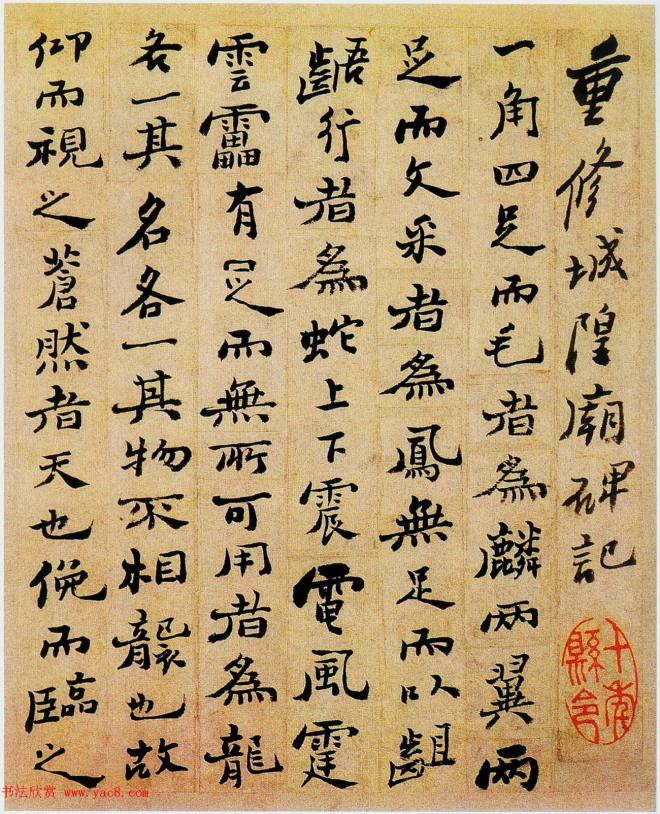 重修城隍廟碑記
一角四足而毛者為麟兩翼兩
足而文采者為鳳無足而以齟
齬行者為蛇上下震電風霆
雲靁有足而無所可用者為龍
各一其名各一其物不相襲也故
仰而視之蒼然者天也俛而臨之
十年縣令
书法欣赏 www.yac8.com